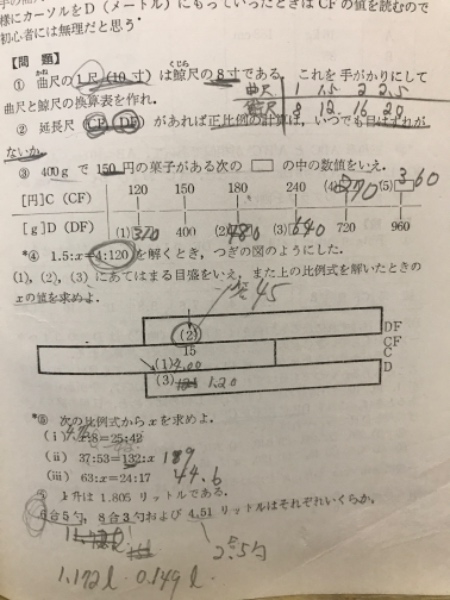 様にカーソルをD（メートル）にもっていったときはCFの値を読むので
初心者には無理だと思う．
【問 題】
① 曲尺の1尺（10寸）は鯨尺の8寸である．これを手がかりにして
曲尺と鯨尺の換算表を作れ．
曲尺 1 1.5 2 2.5
鯨尺 8 12 16 20
② 延長尺 CF DF があれば正比例の計算は，いつでも目はずれが
ないか．
③ 400g で 150 円の菓子がある次の □ の中の数値をいえ．
120 150 180 240 (4) 270 (5) 360
[円]C（CF）
[g]D（DF）
(1) 320 400 (2) 480 (3) 640 720 960
*④ 1.5:x=4:120 を解くとき，つぎの図のようにした．
(1)，(2)，(3) にあてはまる目盛をいえ，また上の比例式を解いたときの
xの値を求めよ．
45
(2)
15
(1) 4.00
(3) 1.20
DF
CF
C
D
*⑤ 次の比例式から x を求めよ．
(i) 4:8=25:42
(ii) 37:53=132:x 189
(iii) 63:x=24:17 44.6
1升は 1.805 リットルである．
6合5勺，8合3勺および 4.51 リットルはそれぞれいくらか．
1.172l . 0.149l .